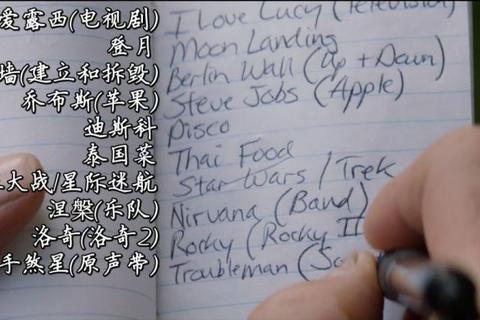 爱露西(电视剧)
I Love Lucy (Television)
登月
Moon Landing
墙(建立和拆毁)
Berlin Wall (Up + Down)
乔布斯(苹果)
Steve Jobs (Apple)
迪斯科
Disco
泰国菜
Thai Food
大战/星际迷航
Star Wars / Trek
涅槃(乐队)
Nirvana (Band)
洛奇(洛奇2)
Rocky (Rocky II
手煞星(原声带)
Troubleman (So